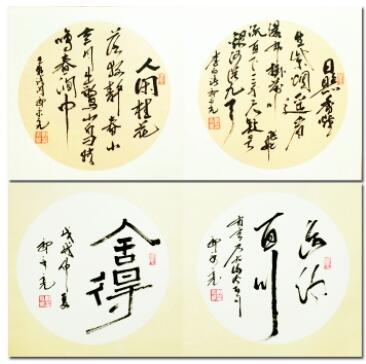 日照香炉
生紫烟遥看
瀑布挂前川飞
流直下三千尺疑是
银河落九天
李白诗
人闲桂花
落夜静春山
空月出驚山鸟时
鸣春涧中
海纳
百川
有容乃大
舍得
戊戌仲夏